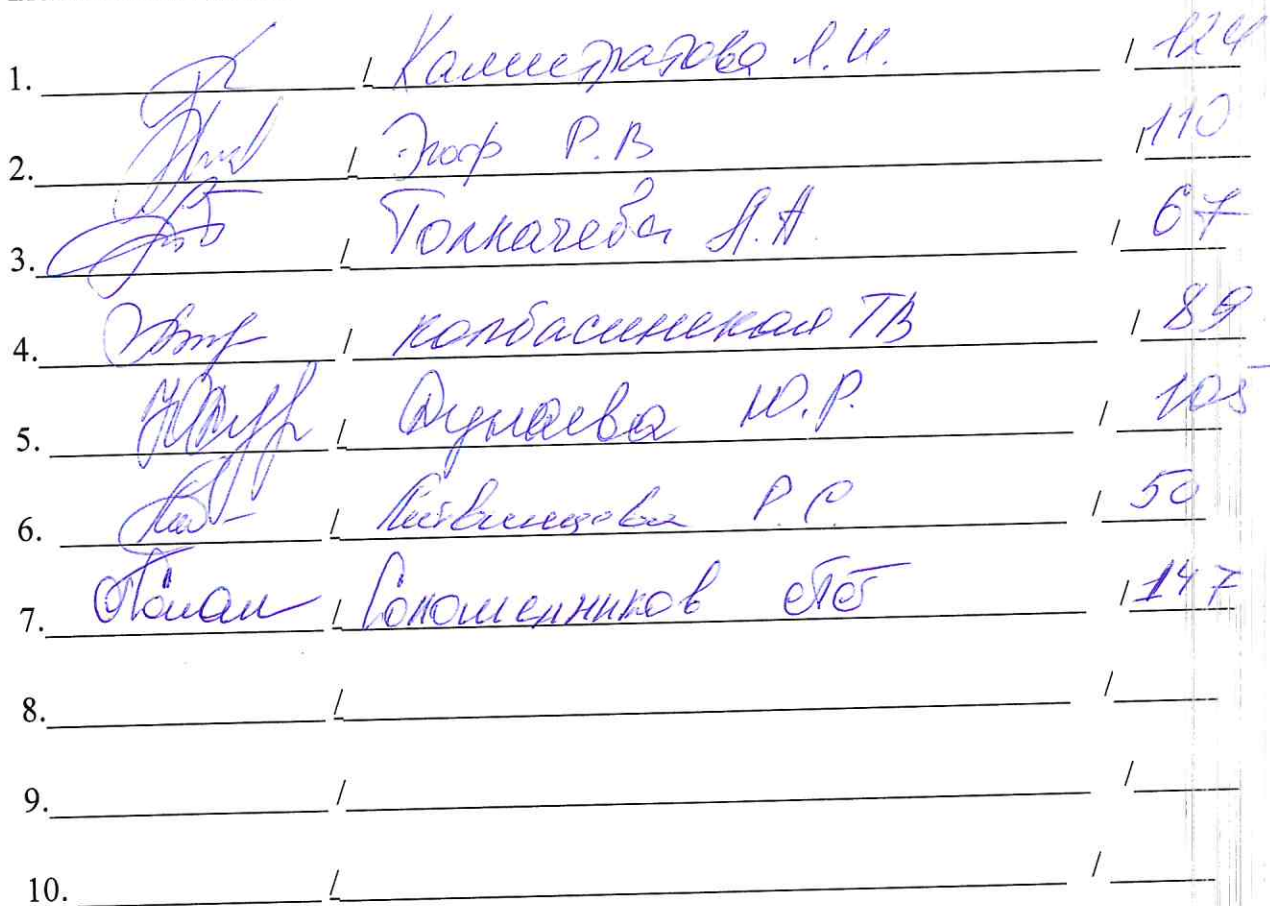 1. / Калистратова Л.И. / 124
2. / Эгоф Р.В / 110
3. / Толкачева Л.А. / 67
4. / Колбасинская ТВ / 89
5. / Дунаева Ю.Р. / 105
6. / Литвинцова Р.С. / 50
7. / Соломенников / 147
8. / /
9. / /
10. / /